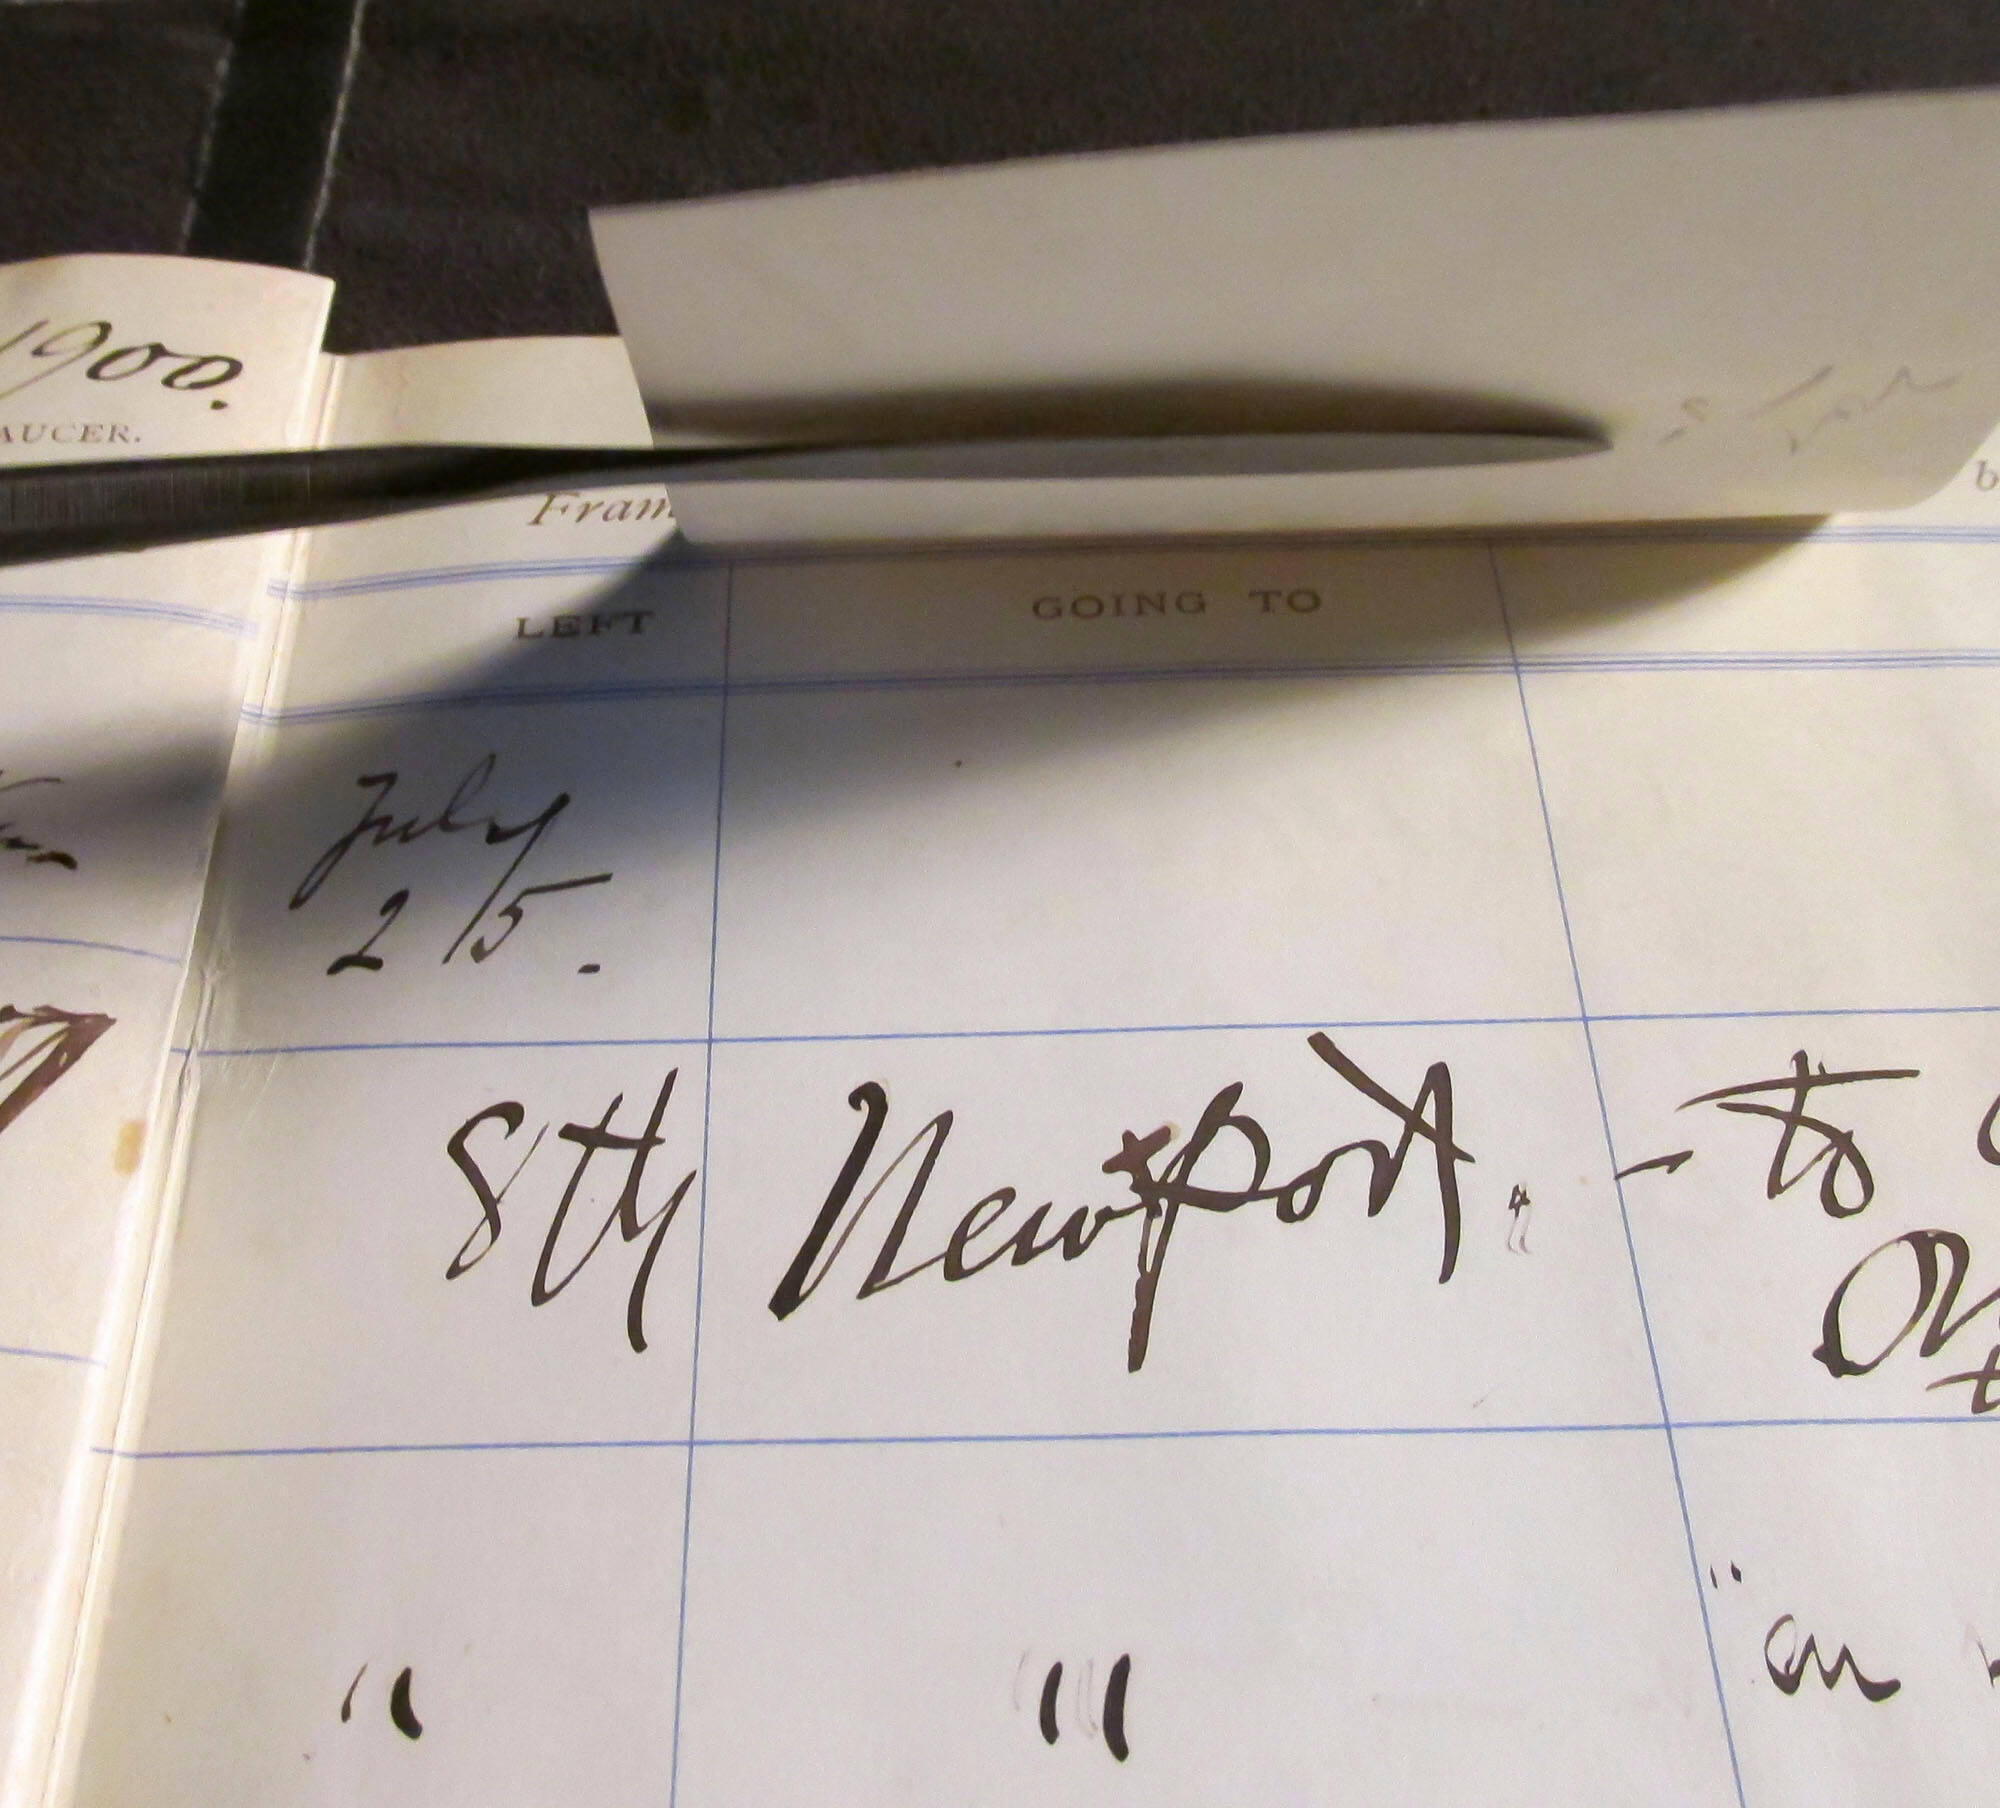 1900.
AUCER.
Fram
b
LEFT GOING TO
July
2/5.
8th Newport. - to
" "
"
on